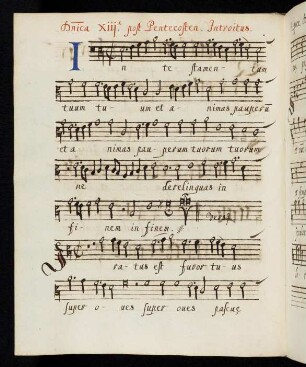 Dnĩca XIII.ª post Pentecosten. Introitus.
In te stamen tum
tuum tu um et a nimas pauperũ
et a nimas pau perum tuorum tuorum
ne derelinquas in
fi nem in finem.
ra tus est furor tu us
super o ves super oves pascuę